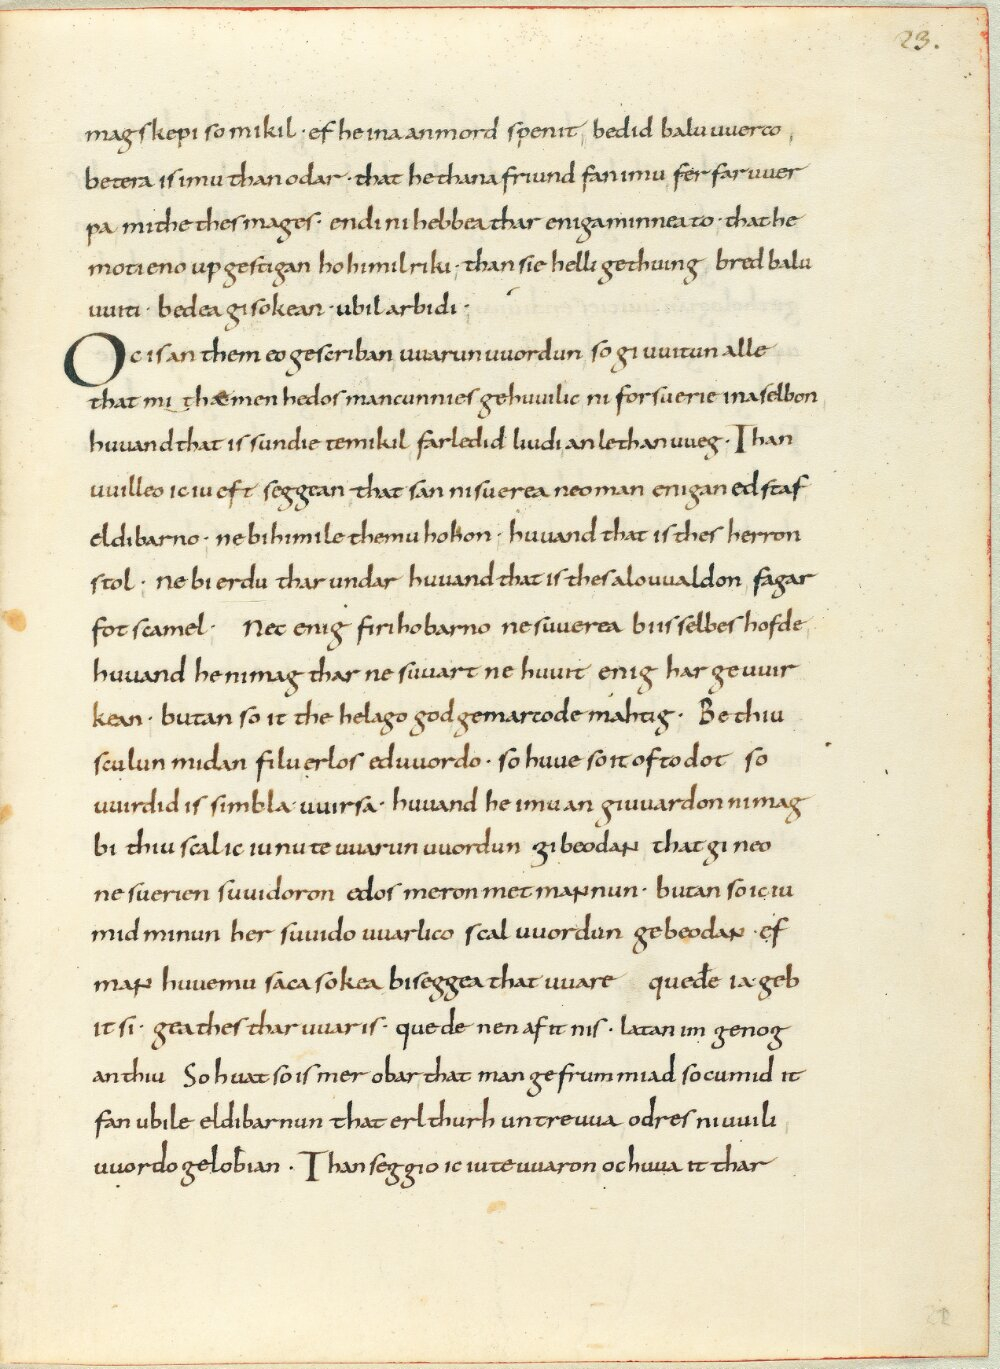 23.
magskepi so mikil · ef he ina an mord spenit, bedid baluuuerco,
betera is imu than odar · that he thana friund fan imu fer faruuer
pa mithe thes mages · endi ni hebbea thar eniga minnea to · that he
moti eno up gestigan ho himilriki · than sie helligethuing bred balu
uuiti · bedea gisokean · ubil arbidi ·
Oc is an them eo gescriban uuarun uuordun so gi uuitun alle
that mi thæ men hedos mancunnies gehuuilic ni forsuerie ina selbon
huuand that is sundie te mikil farledid liudi an lethan uueg · Than
uuilleo ic iu eft seggean that san ni suerea neoman enigan edstaf
eldibarno · ne bi himile themu hohon · huuand that is thes herron
stol · ne bi erdu thar undar huuand that is thes alouualdon fagar
fotscamel · Nec enig firihobarno ne suuerea bi is selbes hofde
huuand he ni mag thar ne suuart ne huuit enig har geuuir
kean · butan so it the helago god gemarcode mahtig · Be thiu
sculun midan filu erlos eduuordo · so huue so it ofto dot so
uuirdid is simbla uuirsa · huuand he imu an giuuardon ni mag
bi thiu scal ic iu nu te uuarun uuordun gibeodan that gi neo
ne suerien suuidoron edos meron met mannun · butan so ic iu
mid minun her suuido uuarlico scal uuordun gebeodan · ef
man huuemu saca sokea biseggea that uuare queđe ia · geb
it si · gea thes thar uuar is · quede nen af it nis · latan im genog
an thiu So huat so is mer obar that man gefrummiad so cumid it
fan ubile eldibarnun that erl thurh untreuua odres ni uuili
uuordo geloƀian · Than seggio ic iu te uuaron oc huuo it thar